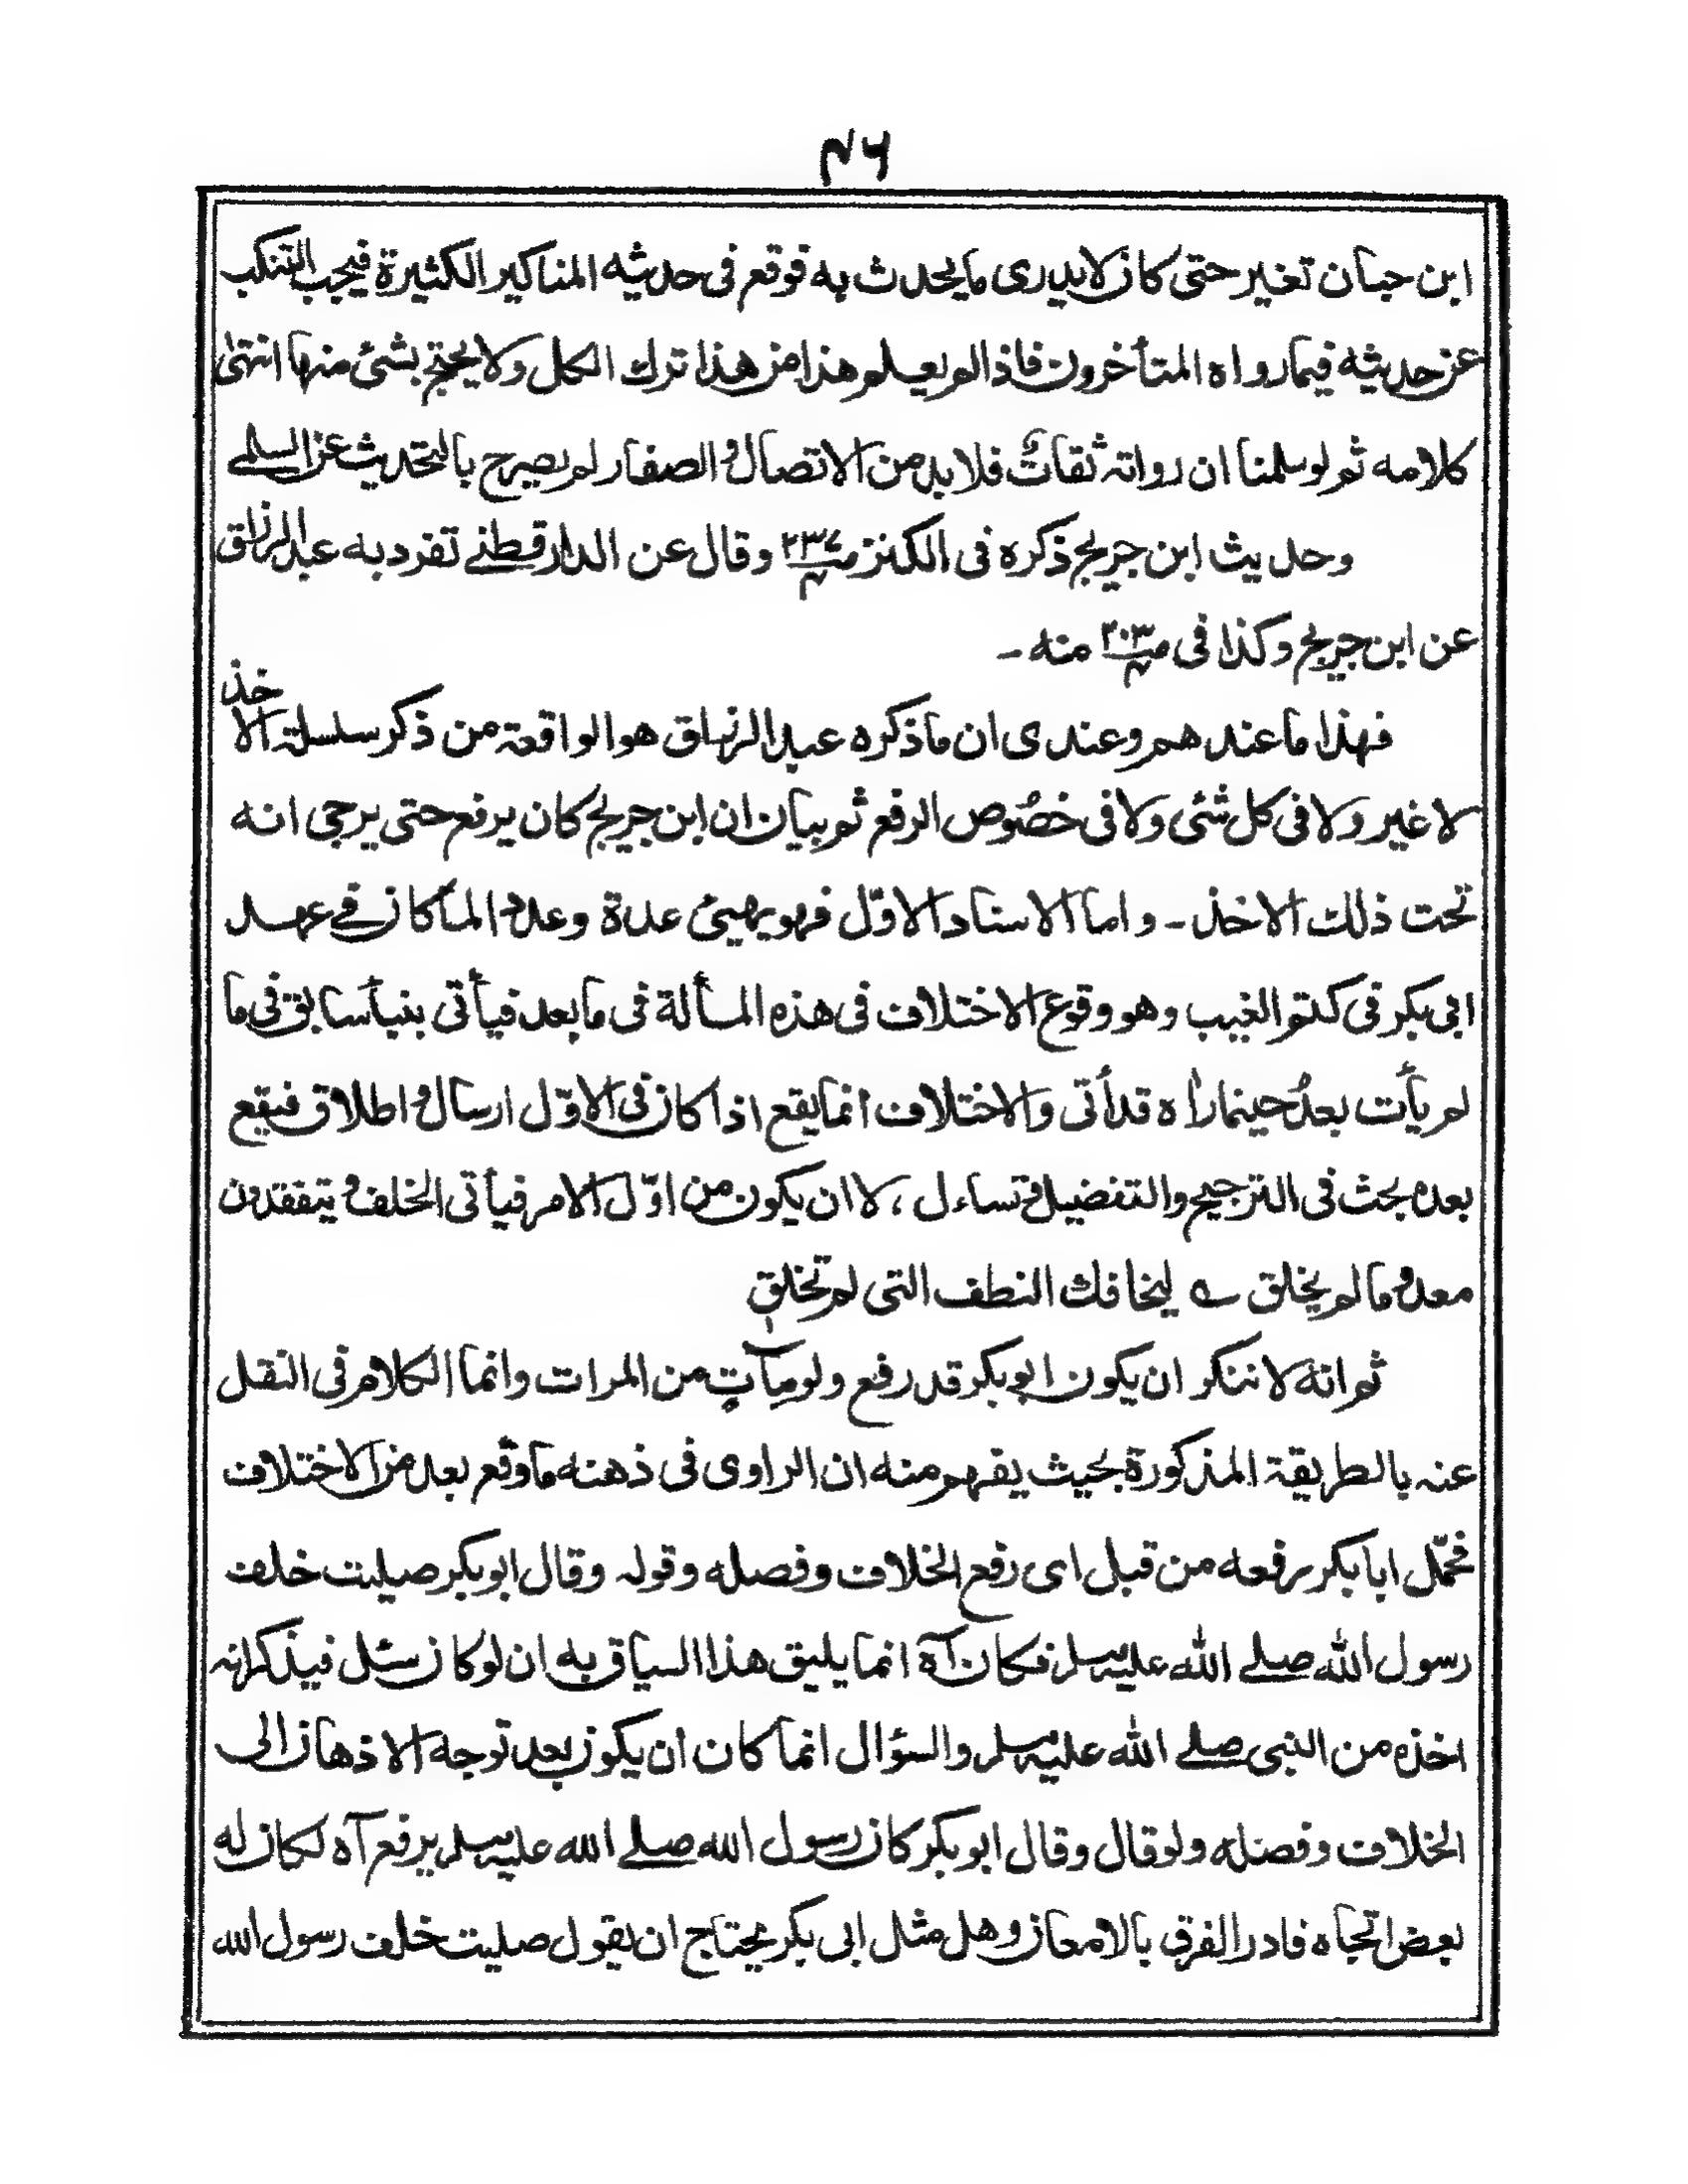 ۴۶
ابن حبان تغير حتى كان لا يدرى ما يحدث به فوقع فى حديثه المناكير الكثيرة فيجب التنكب
عن حديثه فيما رواه المتأخرون فاذا لم يعلم هذا من هذا ترك الكل ولا يحتج بشئ منها انتهىٰ
كلامه ثم لو سلمنا ان رواته ثقاتٌ فلا بد من الاتصال والصفار لم يصرح بالتحديث عن السلمى
وحديث ابن جريج ذكره فى الكنز ص ۲۳۷/۴ وقال عن الدارقطنے تفرد به عبد الرزاق
عن ابن جريج وكذا فى ص ۲۰۳/۴ منه ۔
فهذا ما عندهم وعندى ان ما ذكره عبد الرزاق هو الواقعة من ذكر سلسلة الاخذ
لا غير ولا فى كل شئى ولا فى خصُوص الرفع ثم بيان ان ابن جريج كان يرفع حتى يرجى انه
تحت ذلك الاخذ ۔ واما الاسناد الاوّل فهو يهيئ عدة وعدد المأ كان فے عهد
ابى بكر فى كتم الغيب وهو وقوع الاختلاف فى هذه المسألة فى ما بعد فيأتى بنبأ سابق فى ما
لم يأت بعدُ حينما راٰه قد أتى والاختلاف انما يقع اذا كان فى الاوّل ارسال واطلاق فيقع
بعده بحث فى الترجيح والتفضيل وتساءل ، لا ان يكون من اوّل الامر فيأتى الخلف و يتفقدون
معدوما لم يخلق ے ليخافك النطف التى لم تخلقِ
ثم انه لا ننكر ان يكون ابو بكر قد رفع ولو مِآتٍ من المرات وانما الكلام فى النقل
عنه بالطريقة المذكورة بحيث يفهم منه ان الراوى فى ذهنه ما وقع بعد من الاختلاف
فحمّل ابا بكر رفعه من قبل اى رفع الخلاف وفصله وقوله وقال ابو بكر صليت خلف
رسول الله صلے الله عليه وسلم فكان آه انما يليق هذا السياق به ان لو كان سئل فيذكر انه
اخذه من النبى صلے الله عليه وسلم والسؤال انما كان ان يكون بعد توجه الاذهان الى
الخلاف وفصله ولو قال وقال ابو بكر كان رسول الله صلے الله عليه وسلم يرفع آه لكان له
بعض اتجاه فادر الفرق بالامعان وهل مثل ابى بكر يحتاج ان يقول صليت خلف رسول الله